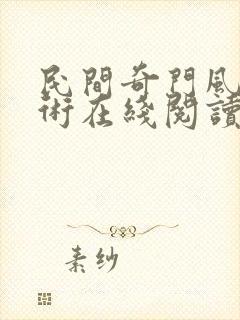 民間奇門風
術在綫閱讀
素纱